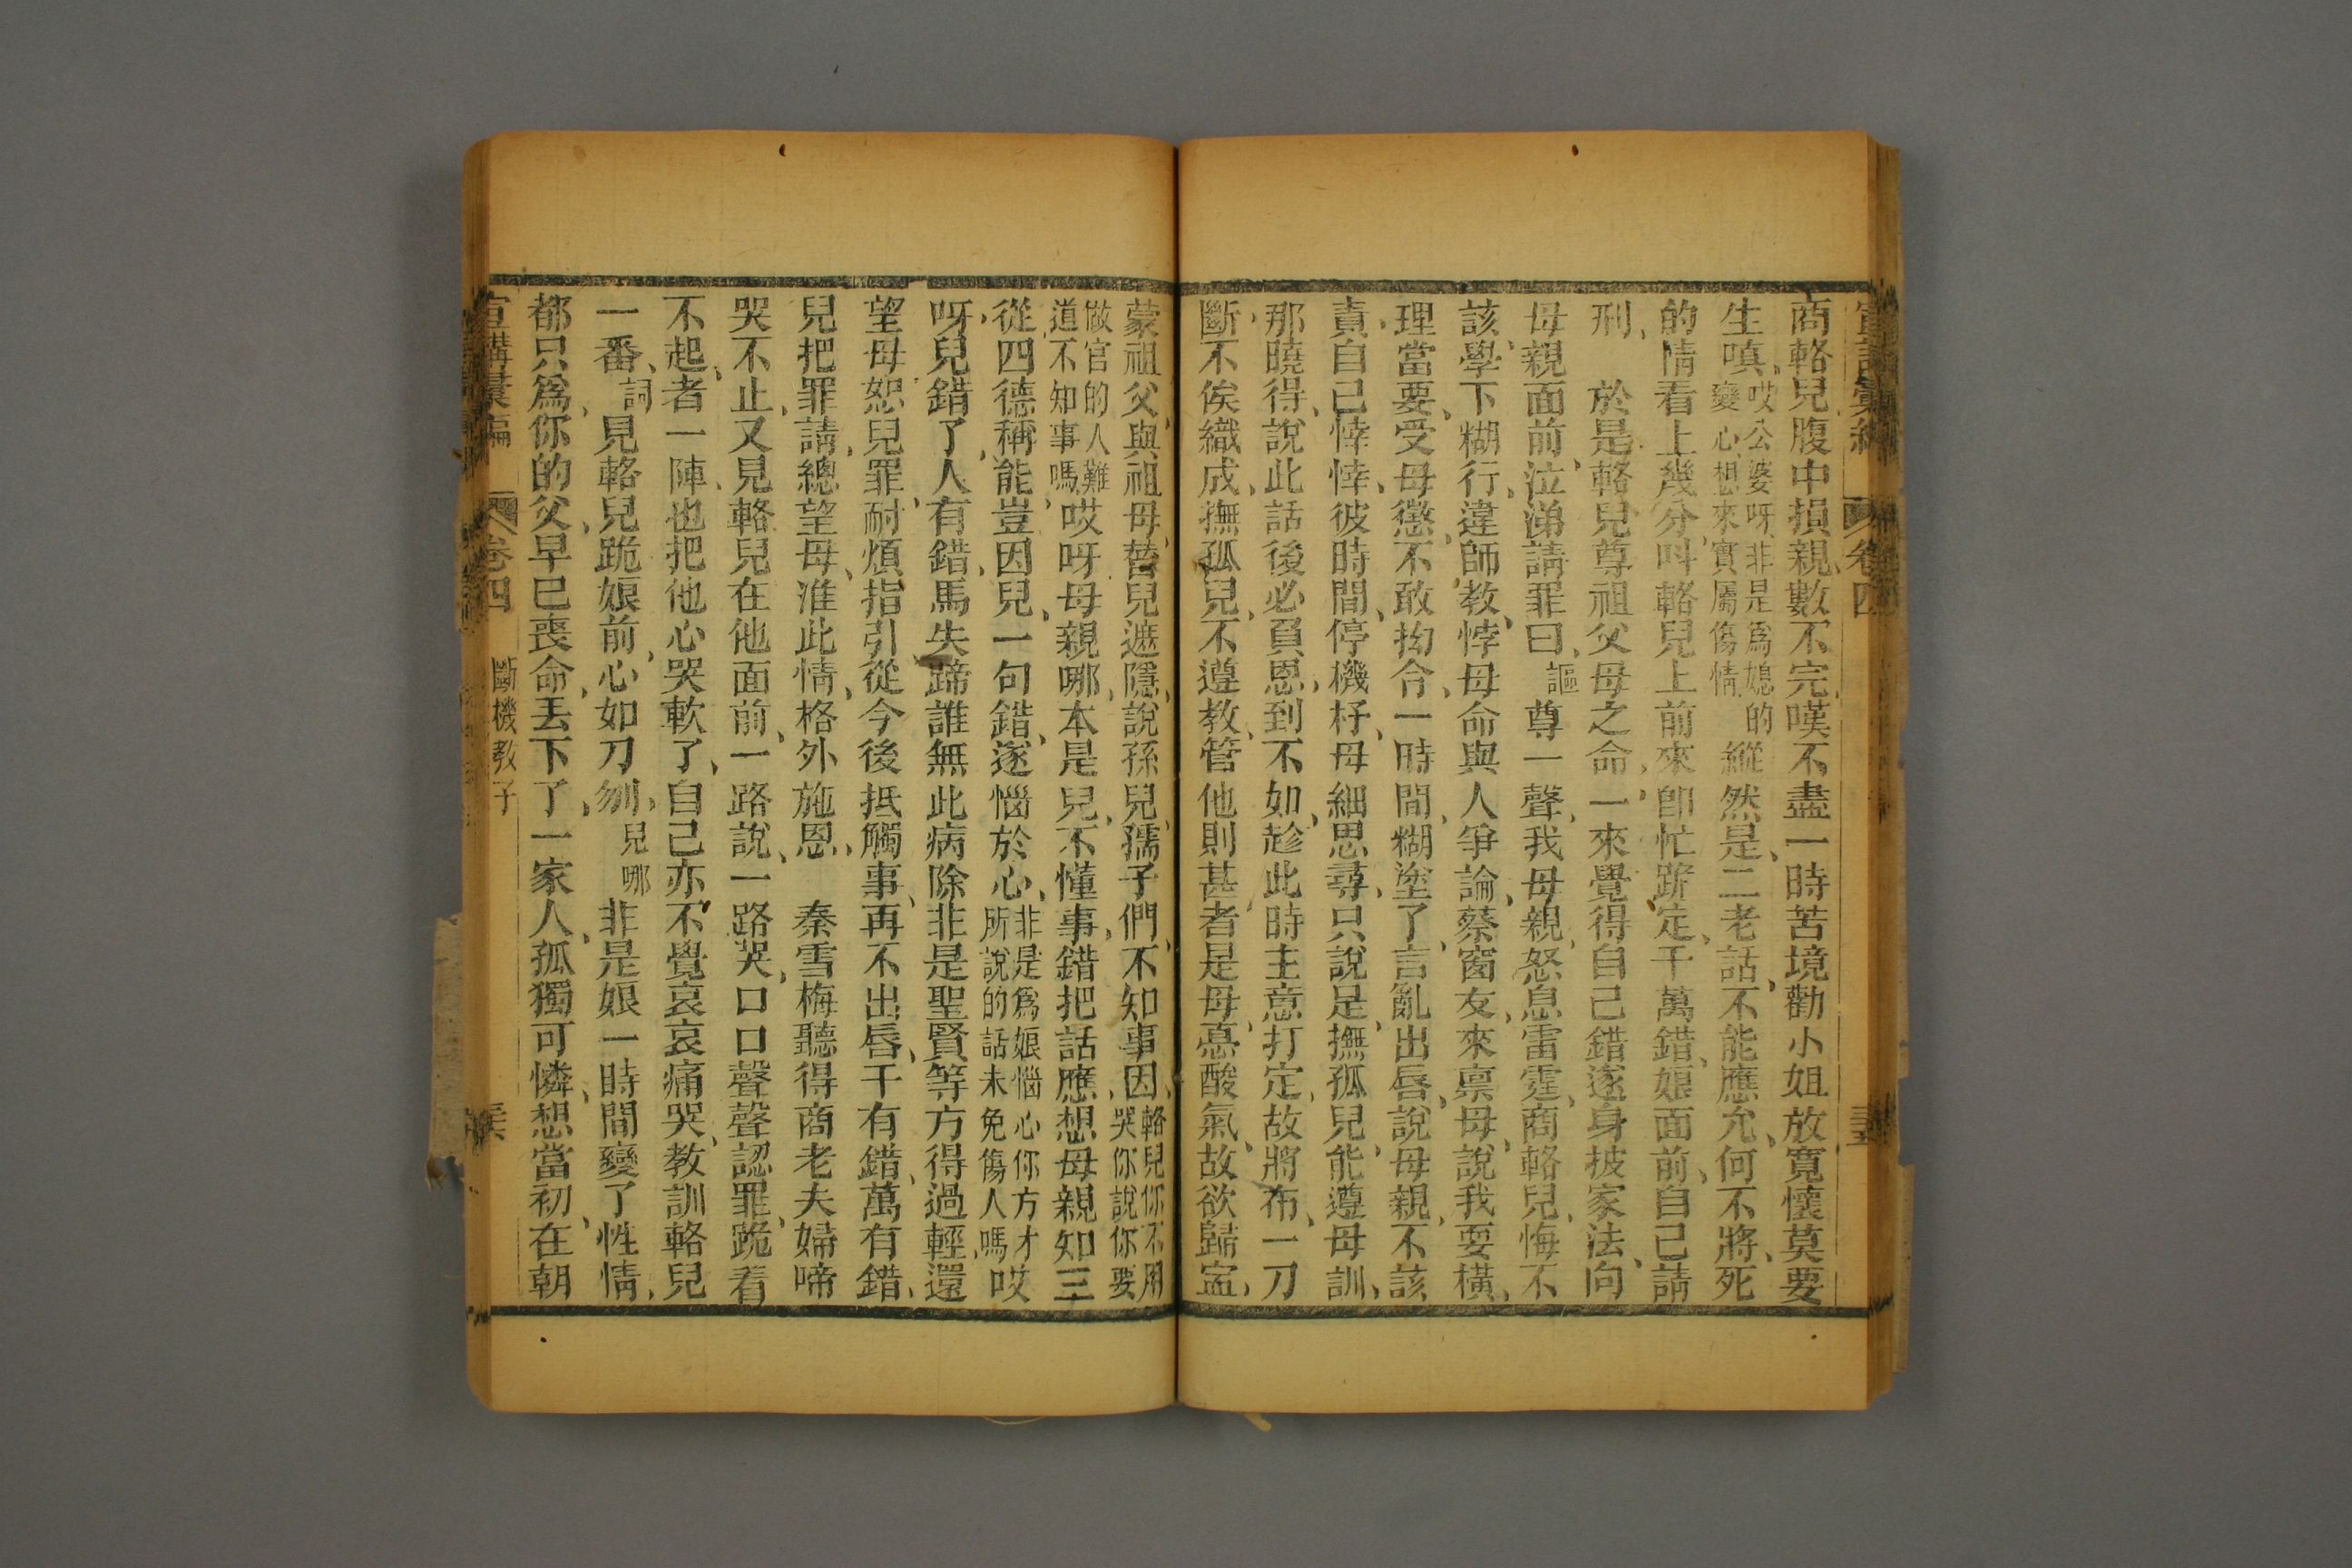 宣講彙編 卷四 三五
商輅兒腹中損親、數不完、嘆不盡一時苦境勸小姐放寬懷莫要
生嗔、哎公婆呀非是爲媳的變心想來實屬傷情、縱然是、二老話、不能應允、何不將、死
的情看上幾分、呌輅兒上前來卽忙跪定、千萬錯、娘面前、自己請
刑、　於是輅兒尊祖父母之命、一來覺得自己錯遂身披家法、向
母親面前、泣涕請罪曰、謳　尊一聲、我母親、怒息雷霆、商輅兒、悔不
該、學下糊行、違師教、悖母命與人爭論、蔡窗友、來禀母、說我耍橫、
理當要、受母懲、不敢拗令、一時間、糊塗了、言亂出唇、說母親、不該
責、自已悻悻、彼時間、停機杼、母細思尋、只說是、撫孤兒、能遵母訓、
那曉得、說此話後必負恩、到不如、趁此時主意打定、故將布、一刀
斷、不俟織成、撫孤兒、不遵教、管他則甚者是母、憂酸氣、故欲歸寍、
蒙祖父、與祖母、替兒遮隱、說孫兒、孺子們、不知事因、輅兒你不用哭你說你要
做官的人難道不知事嗎、哎呀母親哪、本是兒、不懂事、錯把話應、想母親知三
從四德稱能、豈因兒、一句錯、遂惱於心、非是爲娘惱心你方才所說的話未免傷人嗎、哎
呀、兒錯了、人有錯、馬失蹄誰無此病除非是聖賢等方得過輕、還
望母恕兒罪、耐煩指引、從今後抵觸事、再不出唇、千有錯、萬有錯、
兒把罪請、總望母、准此情、格外施恩、　秦雪梅聽得商老夫婦啼
哭不止、又見輅兒在他面前、一路說、一路哭、口口聲聲認罪、跪看
不起、者一陣、也把他心哭軟了、自己亦不覺哀哀痛哭、教訓輅兒
一番、詞　見輅兒跪娘前、心如刀刎、兒哪　非是娘一時間變了性情、
都只爲、你的父、早已喪命、丟下了、一家人、孤獨可憐、想當初、在朝
宣講彙編 卷四 斷機教子 三六